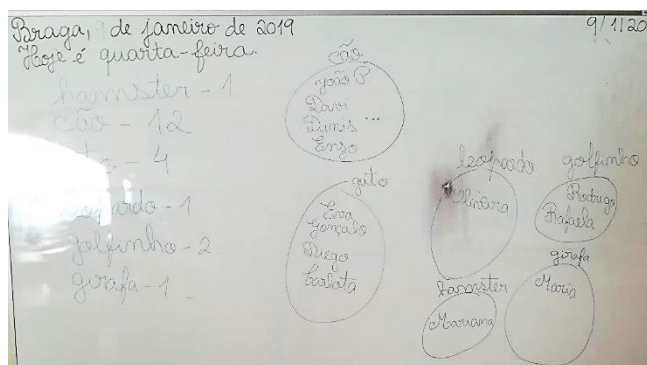 Braga, 9 de janeiro de 2019
9/1/20
Hoje é quarta-feira.
hamster - 1
cão - 12
gato - 4
leopardo - 1
golfinho - 2
girafa - 1
cão
João P.
Davi
Dinis ...
Enzo
gato
Eva
Gonçalo
Diego
Carlota
leopardo
Oliveira
golfinho
Rodrigo
Rafaela
hamster
Mariana
girafa
Maria